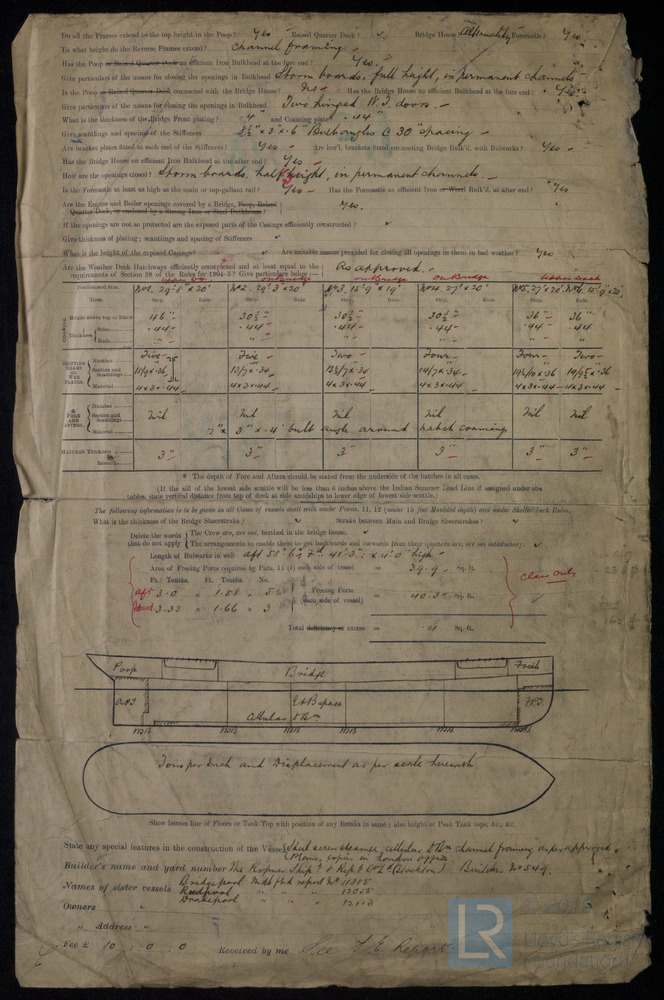 Do all the Frames extend to the top height in the Poop? Yes Raised Quarter Deck? Bridge House Alternately Forecastle? Yes
To what height do the Reverse Frames extend? Channel framing
Has the Poop or Raised Quarter deck an efficient Iron Bulkhead at the fore end? Yes.
Give particulars of the means for closing the openings in Bulkhead Storm boards full height, in permanent channels
Is the Poop or Raised Quarter Deck connected with the Bridge House? No Has the Bridge House an efficient Bulkhead at the fore end? Yes
Give particulars of the means for closing the openings in Bulkhead Two hinged W.I. doors.
What is the thickness of the Bridge Front plating? .4" and Coaming plate .44
Give scantlings and spacing of the Stiffeners x 3" x .6" Bulb angles @ 30" spacing
Are bracket plates fitted at each end of the Stiffeners? Yes Are hor'l. brackets fitted connecting Bridge Bulk'd. with Bulwarks? Yes
Has the Bridge House an efficient Iron Bulkhead at the after end? Yes
How are the openings closed? Storm boards half height, in permanent channels.
Is the Forecastle at least as high as the main or top-gallant rail? Yes Has the Forecastle an efficient Iron or Wood Bulk'd. at after end? Yes
Are the Engine and Boiler openings covered by a Bridge, Poop, Raised
Quarter Deck, or enclosed by a Strong Iron or Steel Deckhouse? Yes.
If the openings are not so protected are the exposed parts of the Casings efficiently constructed?
Give thickness of plating; scantlings and spacing of Stiffeners
What is the height of the exposed Casings? Are suitable means provided for closing all openings in them in bad weather? Yes
Are the Weather Deck Hatchways efficiently constructed and at least equal to the
requirements of Section 28 of the Rules for 1904-5? Give particulars below:— As approved.
Upper Dk on Bridge on Bridge on Bridge Upper Deck
Position and Size No 1. 29'-8" x 20' No 2. 29'-3" x 20 No 3. 15'-9" x 19' No 4. 27' x 20' No 5. 27' x 20' No 6. 15'-9" x 20.
Item. Ship. Rule. Ship. Rule. Ship. Rule. Ship. Rule. Ship. Ship.
COAMING
Height above top of Deck 46" 30½" 30½" 30½" 36" 36"
Thickness Sides .44 .44 .44 .44 .44 .44
Ends " " " " " "
SHIFTING BEAMS OR WEB PLATES
Number Five Five Two Four Four Two
Section and Scantlings
Material 4x3x.44 4x3x.44 4x3x.44 4x3x.44 4x3x.44 4x3x.44
* FORE AND AFTERS.
Number
Section and Scantlings Nil Nil Nil Nil Nil Nil
Material 7" x 3" x .4" bulb angle around hatch coaming
HATCHES Thickness 3" 3" 3" 3" 3" 3"
Remarks
* The depth of Fore and Afters should be stated from the underside of the hatches in all cases.
(If the sill of the lowest side scuttle will be less than 6 inches above the Indian Summer Load Line if assigned under the
tables, state vertical distance from top of deck at side amidships to lower edge of lowest side scuttle.)
The following information is to be given in all Cases of vessels dealt with under Pards. 11, 12 (under 15 feet Moulded depth) and under Shelter Deck Rules.
What is the thickness of the Bridge Sheerstrake? Strake between Main and Bridge Sheerstrakes?
Delete the words that do not apply The Crew are, are not, berthed in the bridge house.
The arrangements to enable them to get backwards and forwards from their quarters are, are not satisfactory.
Length of Bulwarks in well aft 55'.6" 41'-3" x 4'0" high
Area of Freeing Ports required by Para. 11 (e) each side of vessel = 39.9 Sq. ft.
Class only
Ft. Tenths. Ft. Tenths. No.
Aft 3.0 x 1.58 x 5 Freeing Ports
(each side of vessel) = 40.3 Sq. ft.
3.33 x 1.66 x 3
Total deficiency or excess = .4 Sq. ft.
Poop Bridge
A.P.T E & B space F.P.T.
Cellular D Bm
Tons per Inch and Displacement as per scale herewith
Show hereon line of Floors or Tank Top with position of any Breaks in same; also height of Peak Tank tops, &c., &c.
State any special features in the construction of the Vessel Steel screw steamer, cellular D Bm channel framing, as per approved
Plans, copies in London office
Builder's name and yard number The Ropner Ship & Rep Co Ld (Stockton) Builders No 549.
Names of sister vessels Bridgepool Mdbro rept report No 11885
Reedpool " " " 12055
Drakepool " " " 12113
Owners "
" Address "
Fee £ 10 : 0 : 0 Received by me See F.E. Report
LR
© 2019
Lloyd's Register
Foundation